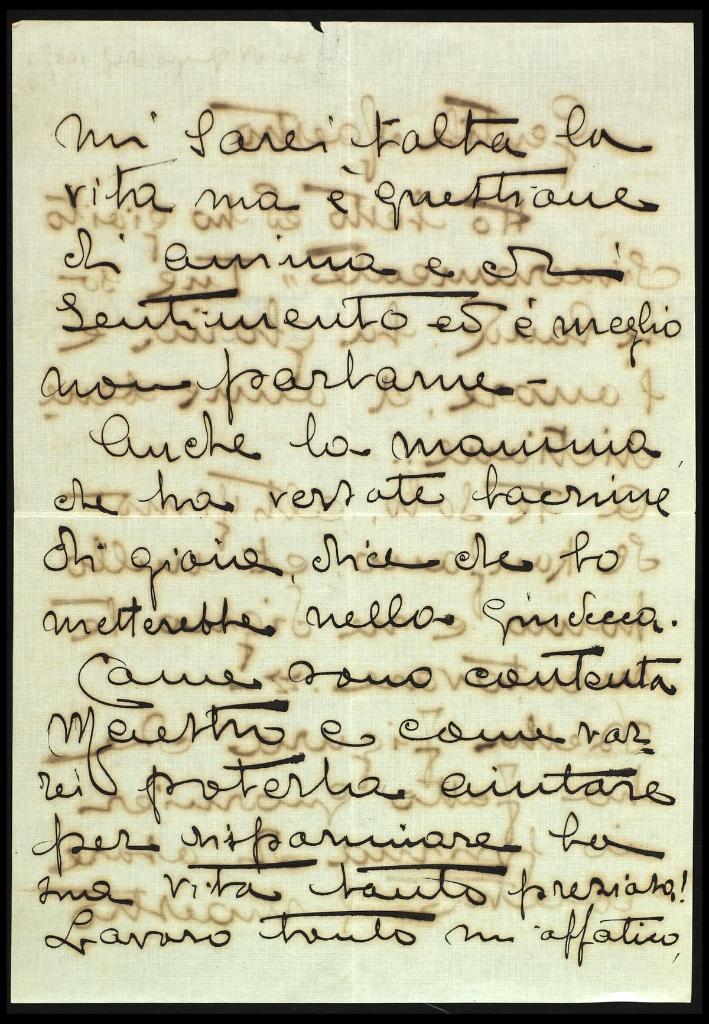 mi sarei tolta la
vita ma è questione
di anima e di
sentimento ed è meglio
non parlarne -
Anche la mamma,
che ha versate lacrime
di gioia, dice che lo
metterebbe nella Giudecca.
Come sono contenta
Maestro e come vor=
rei poterla aiutare
per risparmiare la
sua vita tanto preziosa!
Lavoro tanto mi affatico,